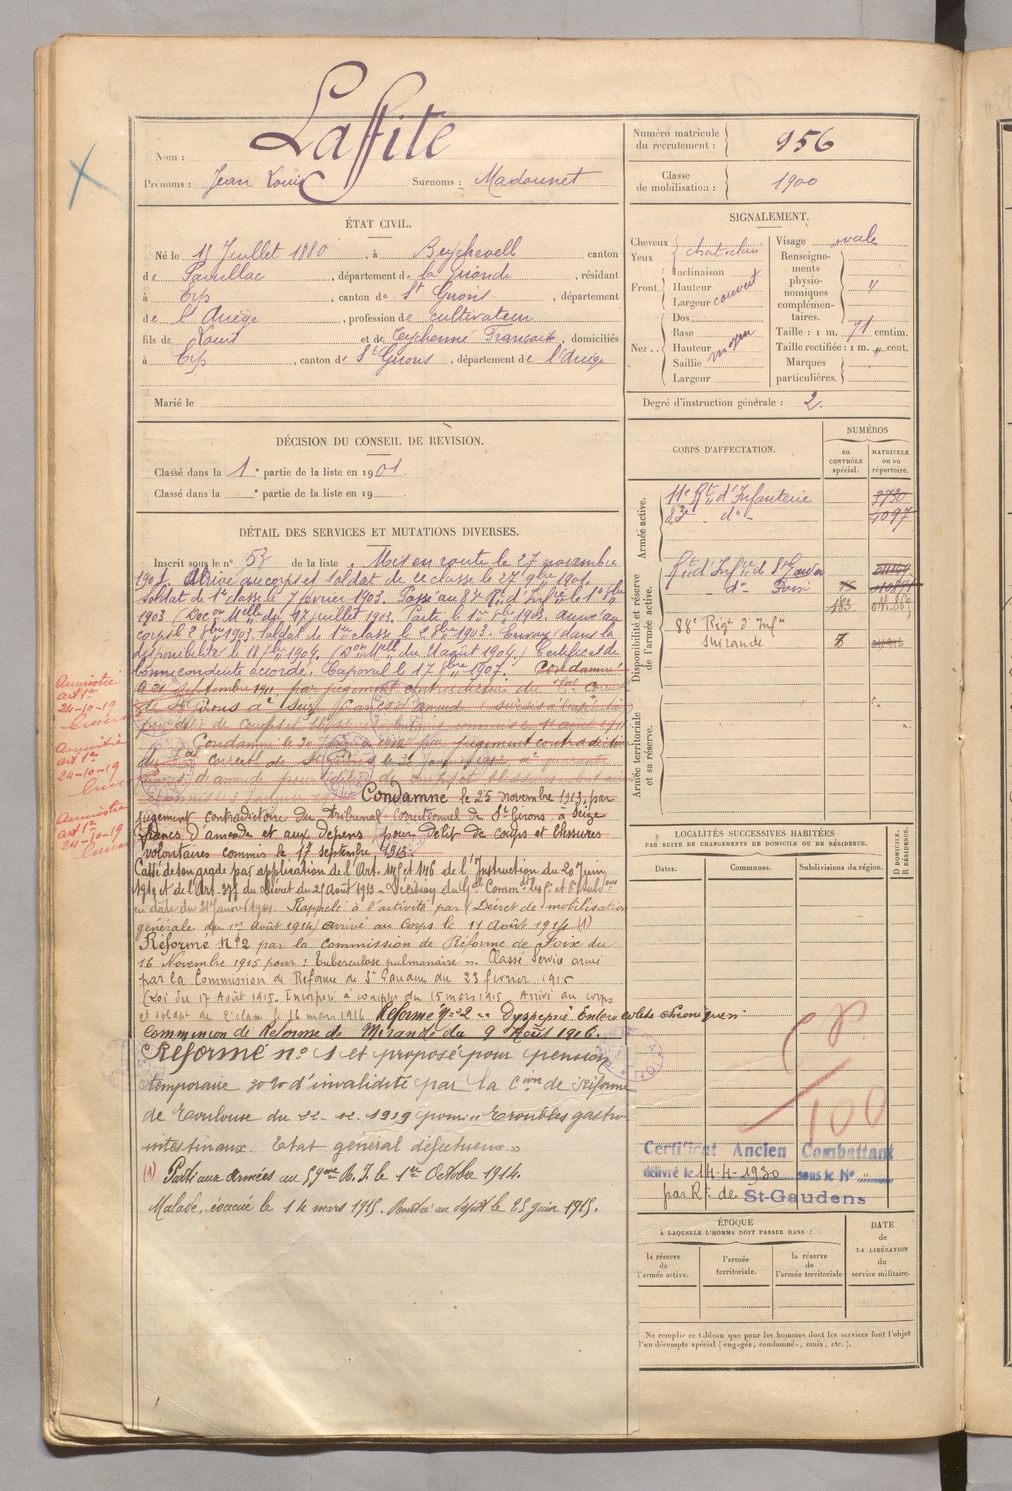 Nom : Laffite
Prénoms : Jean Louis Surnoms : Madounet
Numéro matricule du recrutement : 956
Classe de mobilisation : 1900
ÉTAT CIVIL.
Né le 15 Juillet 1880, à Beychevell canton
de Pauillac, département de la Gironde, résidant
à Erp, canton de St Girons, département
de l'Ariège, profession de cultivateur
fils de Louis et de Teychenné Françoise, domiciliés
à Erp, canton de St Girons, département de l'Ariège
Marié le
SIGNALEMENT.
Cheveux
Yeux
chat. clair
Front.
Inclinaison
Hauteur
Largeur
couvert
Nez..
Dos
Base
Hauteur
Saillie
Largeur
moyen
Visage ovale
Renseigne-
ments
physio-
nomiques
complémen-
taires.
"
Taille : 1 m. 71 centim.
Taille rectifiée : 1 m. " cent.
Marques
particulières.
Degré d'instruction générale : 2.
DÉCISION DU CONSEIL DE RÉVISION.
Classé dans la 1e partie de la liste en 1901.
Classé dans la e partie de la liste en 19
DÉTAIL DES SERVICES ET MUTATIONS DIVERSES.
Inscrit sous le n° 58 de la liste. Mis en route le 27 novembre
1901. Arrivé au corps et soldat de 2e classe le 27 9bre 1901.
Soldat de 1e classe le 7 février 1903. Passé au 83e Rt d'Infie le 1er 8bre
1903 (Décon Mtelle du 17 juillet 1903. Parti le 1er 8bre 1903. Arrivé au
corps le 2 8bre 1903. Soldat de 1re classe le 2 8bre 1903. Envoyé dans la
disponibilité le 18 7bre 1904. (Don Melle du 21 août 1904.) Certificat de
bonne conduite accordé. Caporal le 17 1907. Condamné
le 21 Septembre 1911 par jugement contradictoire du Tal Correct
de St Girons à Seize francs d'amende (sursis à l'exécution)
pour délit de coups et blessures commis le 11 août 1911
Condamné le 30 janvier 1912 par jugement contradictoire
du Tal Correctl de St Girons à quarante
francs d'amende pour délit de coups et blessures
Condamné le 25 novembre 1913 par
jugement contradictoire du Tribunal Correctionnel de St Girons à Seize
francs d'amende et aux dépens pour délit de coups et blessures
volontaires commis le 17 septembre 1913.
Cassé de son grade par application de l'Art. 145 et 146 de l'Instruction du 20 Juin
1912 et de l'Art. 375 du Décret du 25 Août 1913 - Décision du Gal Commt
en date du 31 janvr 1914. Rappelé à l'activité par Décret de mobilisation
générale du 1er Août 1914, arrivé au Corps le 11 Août 1914 (1)
Réformé N°2 par la Commission de Réforme de Foix du
16 Novembre 1915 pour : Tuberculose pulmonaire ". Classé Service armé
par la Commission de Réforme de St Gaudens du 23 février 1916
(Loi du 17 Août 1915. Incorporé à compter du 15 mars 1915 Arrivé au corps
et soldat de 2e class le 16 mars 1916 Réformé N°2 " Dyspepsie Entéro colite chronique "
Commission de Réforme de Mirande du 9 Août 1916.
Réformé n° 1 et proposé pour pension
temporaire 30 % d'invalidité par la Cion de Réforme
de Toulouse du 22-12-1929 pour " Troubles gastro
intestinaux. Etat général défectueux "
(1) Parti aux Armées au 59me R.I. le 1er Octobre 1914.
Malade, évacué le 14 mars 1915. Rentré au dépôt le 25 juin 1915.
Amnistié
art 1er
24-10-19
Amnistié
art 1er
24-10-19
Amnistié
art 1er
24-10-19
CORPS D'AFFECTATION.
NUMÉROS
au CONTRÔLE spécial.
MATRICULE ou au répertoire.
Armée active.
11e Rt d'Infanterie 3730
83e - do - 4097
Disponibilité et réserve de l'armée active.
Rt d'Infie de St Gaudens
- do - Foix
183
88e Régt d'Infie
Mirande 8
Armée territoriale et sa réserve.
LOCALITÉS SUCCESSIVES HABITÉES
PAR SUITE DE CHANGEMENTS DE DOMICILE OU DE RÉSIDENCE.
Dates. Communes. Subdivisions de région. D DOMICILE. R RÉSIDENCE.
100
Certificat Ancien Combattant
délivré le 14-4-1930 sous le N°
par Rt de St-Gaudens
ÉPOQUE
À LAQUELLE L'HOMME DOIT PASSER DANS :
la réserve de l'armée active.
l'armée territoriale.
la réserve de l'armée territoriale
DATE
de
LA LIBÉRATION
du
service militaire.
Ne remplir ce tableau que pour les hommes dont les services font l'objet
d'un décompte spécial (engagés, condamnés, omis, etc.).